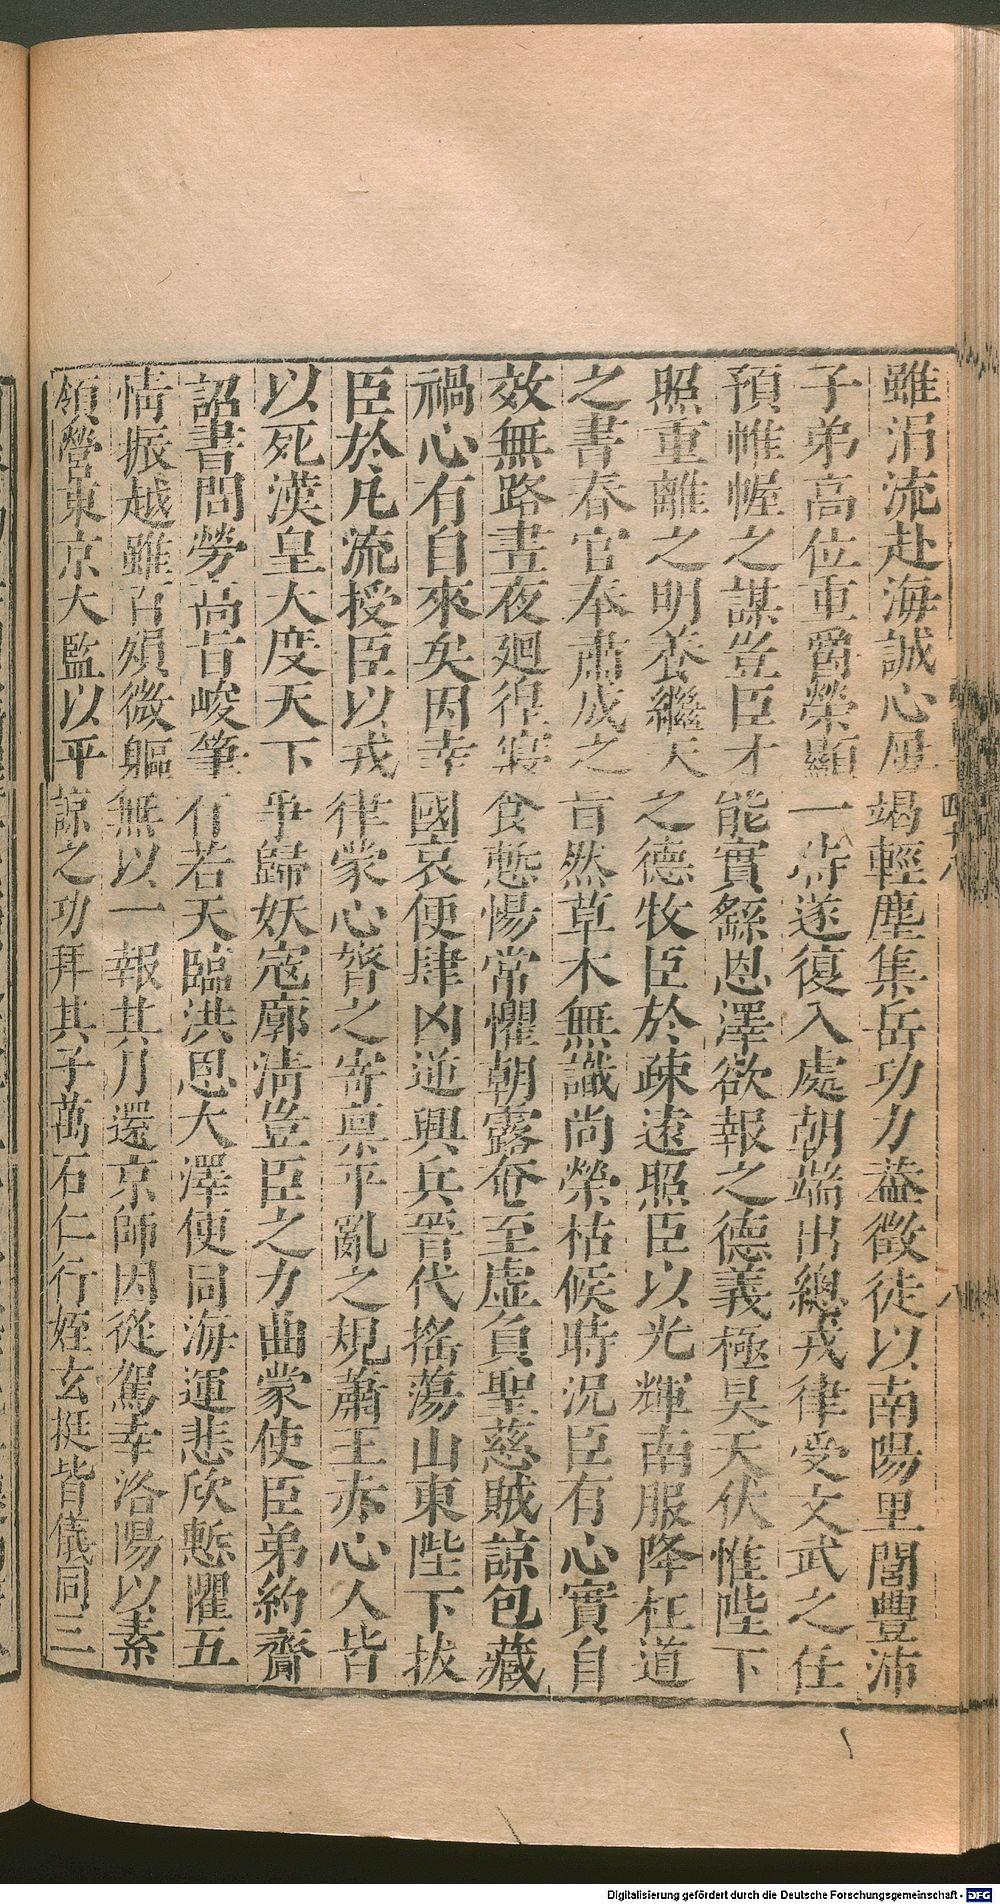 雖涓流赴海誠心屢竭輕塵集岳功力蓋微徒以南陽里閭豐沛
子弟高位重爵榮顯一時遂復入處朝端出總戎律受文武之任
預帷幄之謀豈臣才能實繇恩澤欲報之德義極昊天伏惟陛下
照重離之明養繼天之德牧臣於疎遠照臣以光輝南服降枉道
之書春官奉肅成之旨然草木無識尚榮枯候時況臣有心實自
效無路晝夜廻徨寢食慙惕常懼朝露奄至虛負聖慈賊諒包藏
禍心有自來矣因幸國哀便肆凶逆興兵晉代搖蕩山東陛下拔
臣於凡流授臣以戎律蒙心膂之寄稟平亂之規蕭王赤心人皆
以死漢皇大度天下爭歸妖寇廓淸豈臣之力曲蒙使臣弟約齎
詔書問勞高旨峻筆有若天臨洪恩大澤使同海運悲欣慙懼五
情振越雖百殞微軀無以一報其月還京師因從駕幸洛陽以素
領營東京大監以平諒之功拜其子萬石仁行姪玄挺皆儀同三
四十八
八
Digitalisierung gefördert durch die Deutsche Forschungsgemeinschaft - DFG